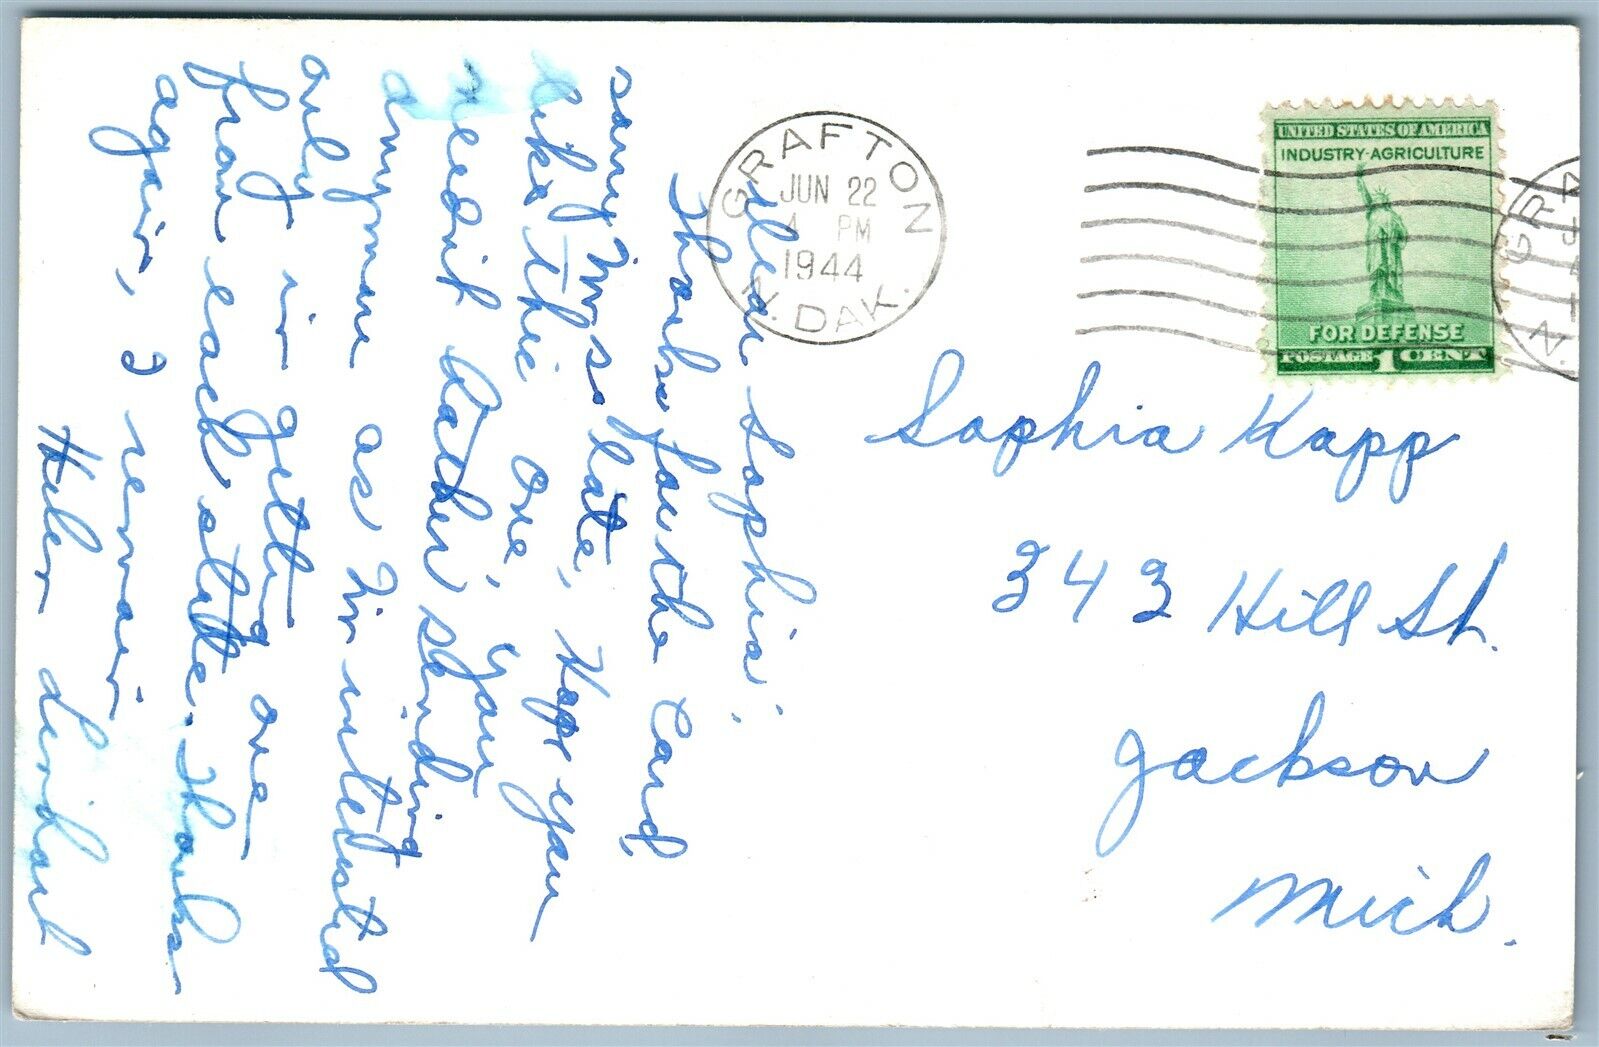 Dear Sophia;
Thanks for the Card,
sorry I'm so late, Hope you
like this one, your
needit bother, sending
anymore as I'm intrestrad
only in getting one
frof from each state. Thanks
again, I remain
Helen
GRAFTON
JUN 22
4 PM
1944
N. DAK.
UNITED STATES OF AMERICA
INDUSTRY-AGRICULTURE
FOR DEFENSE
POSTAGE 1 CENT
Sophia Kapp
343 Hill St.
Jackson
Mich.